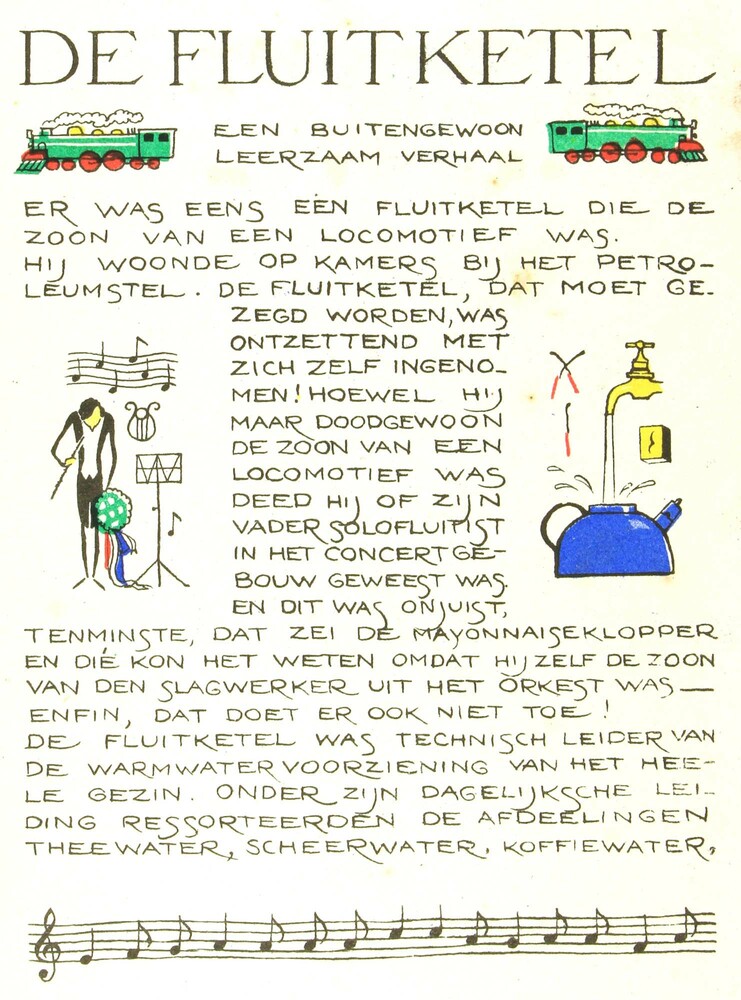 DE FLUITKETEL
EEN BUITENGEWOON
LEERZAAM VERHAAL
ER WAS EENS EEN FLUITKETEL DIE DE
ZOON VAN EEN LOCOMOTIEF WAS.
HIJ WOONDE OP KAMERS BIJ HET PETRO-
LEUMSTEL. DE FLUITKETEL, DAT MOET GE-
ZEGD WORDEN, WAS
ONTZETTEND MET
ZICH ZELF INGENO-
MEN! HOEWEL HIJ
MAAR DOODGEWOON
DE ZOON VAN EEN
LOCOMOTIEF WAS
DEED HIJ OF ZIJN
VADER SOLOFLUITIST
IN HET CONCERTGE-
BOUW GEWEEST WAS.
EN DIT WAS ONJUIST,
TENMINSTE, DAT ZEI DE MAYONNAISEKLOPPER
EN DIE KON HET WETEN OMDAT HIJ ZELF DE ZOON
VAN DEN SLAGWERKER UIT HET ORKEST WAS —
ENFIN, DAT DOET ER OOK NIET TOE!
DE FLUITKETEL WAS TECHNISCH LEIDER VAN
DE WARMWATERVOORZIENING VAN HET HEE-
LE GEZIN. ONDER ZIJN DAGELIJKSCHE LEI-
DING RESSORTEERDEN DE AFDEELINGEN
THEEWATER, SCHEERWATER, KOFFIEWATER,